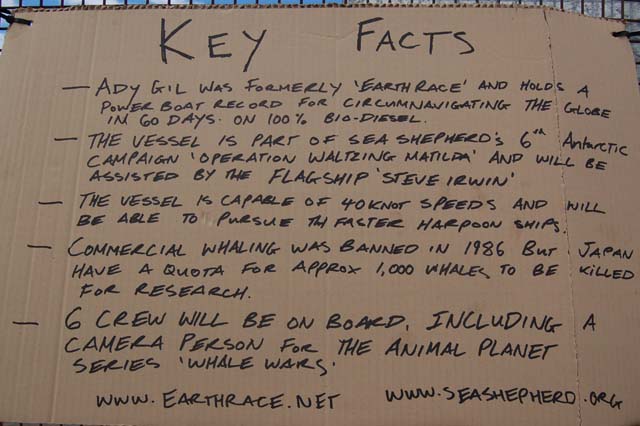 KEY FACTS
— ADY GIL WAS FORMERLY 'EARTHRACE' AND HOLDS A
POWER BOAT RECORD FOR CIRCUMNAVIGATING THE GLOBE
IN 60 DAYS. ON 100% BIO-DIESEL.
— THE VESSEL IS PART OF SEA SHEPHERD'S 6th Antarctic
CAMPAIGN 'OPERATION WALTZING MATILDA' AND WILL BE
ASSISTED BY THE FLAGSHIP 'STEVE IRWIN'
— THE VESSEL IS CAPABLE OF 40 KNOT SPEEDS AND WILL
BE ABLE TO PURSUE TH FASTER HARPOON SHIPS.
— COMMERCIAL WHALING WAS BANNED IN 1986 BUT JAPAN
HAVE A QUOTA FOR APPROX 1,000 WHALES TO BE KILLED
FOR RESEARCH.
— 6 CREW WILL BE ON BOARD, INCLUDING A
CAMERA PERSON FOR THE ANIMAL PLANET
SERIES 'WHALE WARS'
WWW.EARTHRACE.NET WWW.SEASHEPHERD.ORG